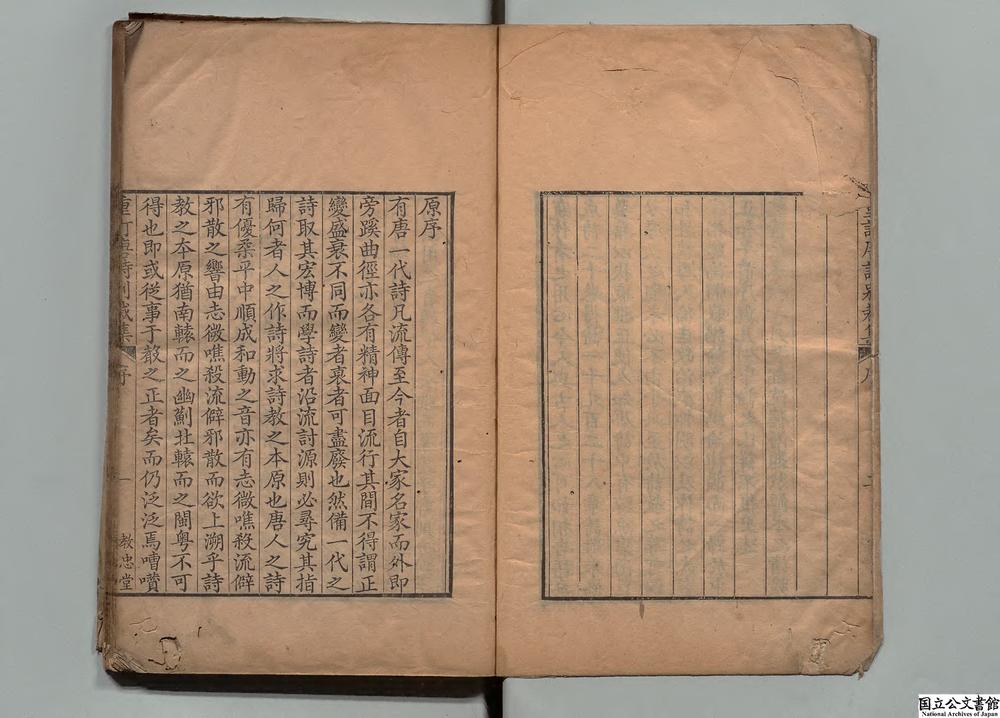 重訂唐詩別裁集 序
原序
有唐一代詩凡流傳至今者自大家名家而外即
旁蹊曲徑亦各有精神面目流行其間不得謂正
變盛衰不同而變者衰者可盡廢也然備一代之
詩取其宏博而學詩者沿流討源則必尋究其指
歸何者人之作詩將求詩教之本原也唐人之詩
有優柔平中順成和動之音亦有志微噍殺流僻
邪散之響由志微噍殺流僻邪散而欲上溯乎詩
教之本原猶南轅而之幽薊北轅而之閩粵不可
得也即或從事于教之正者矣而仍泛泛焉嘈囋
重訂唐詩別裁集 序 一 教忠堂
国立公文書館
National Archives of Japan